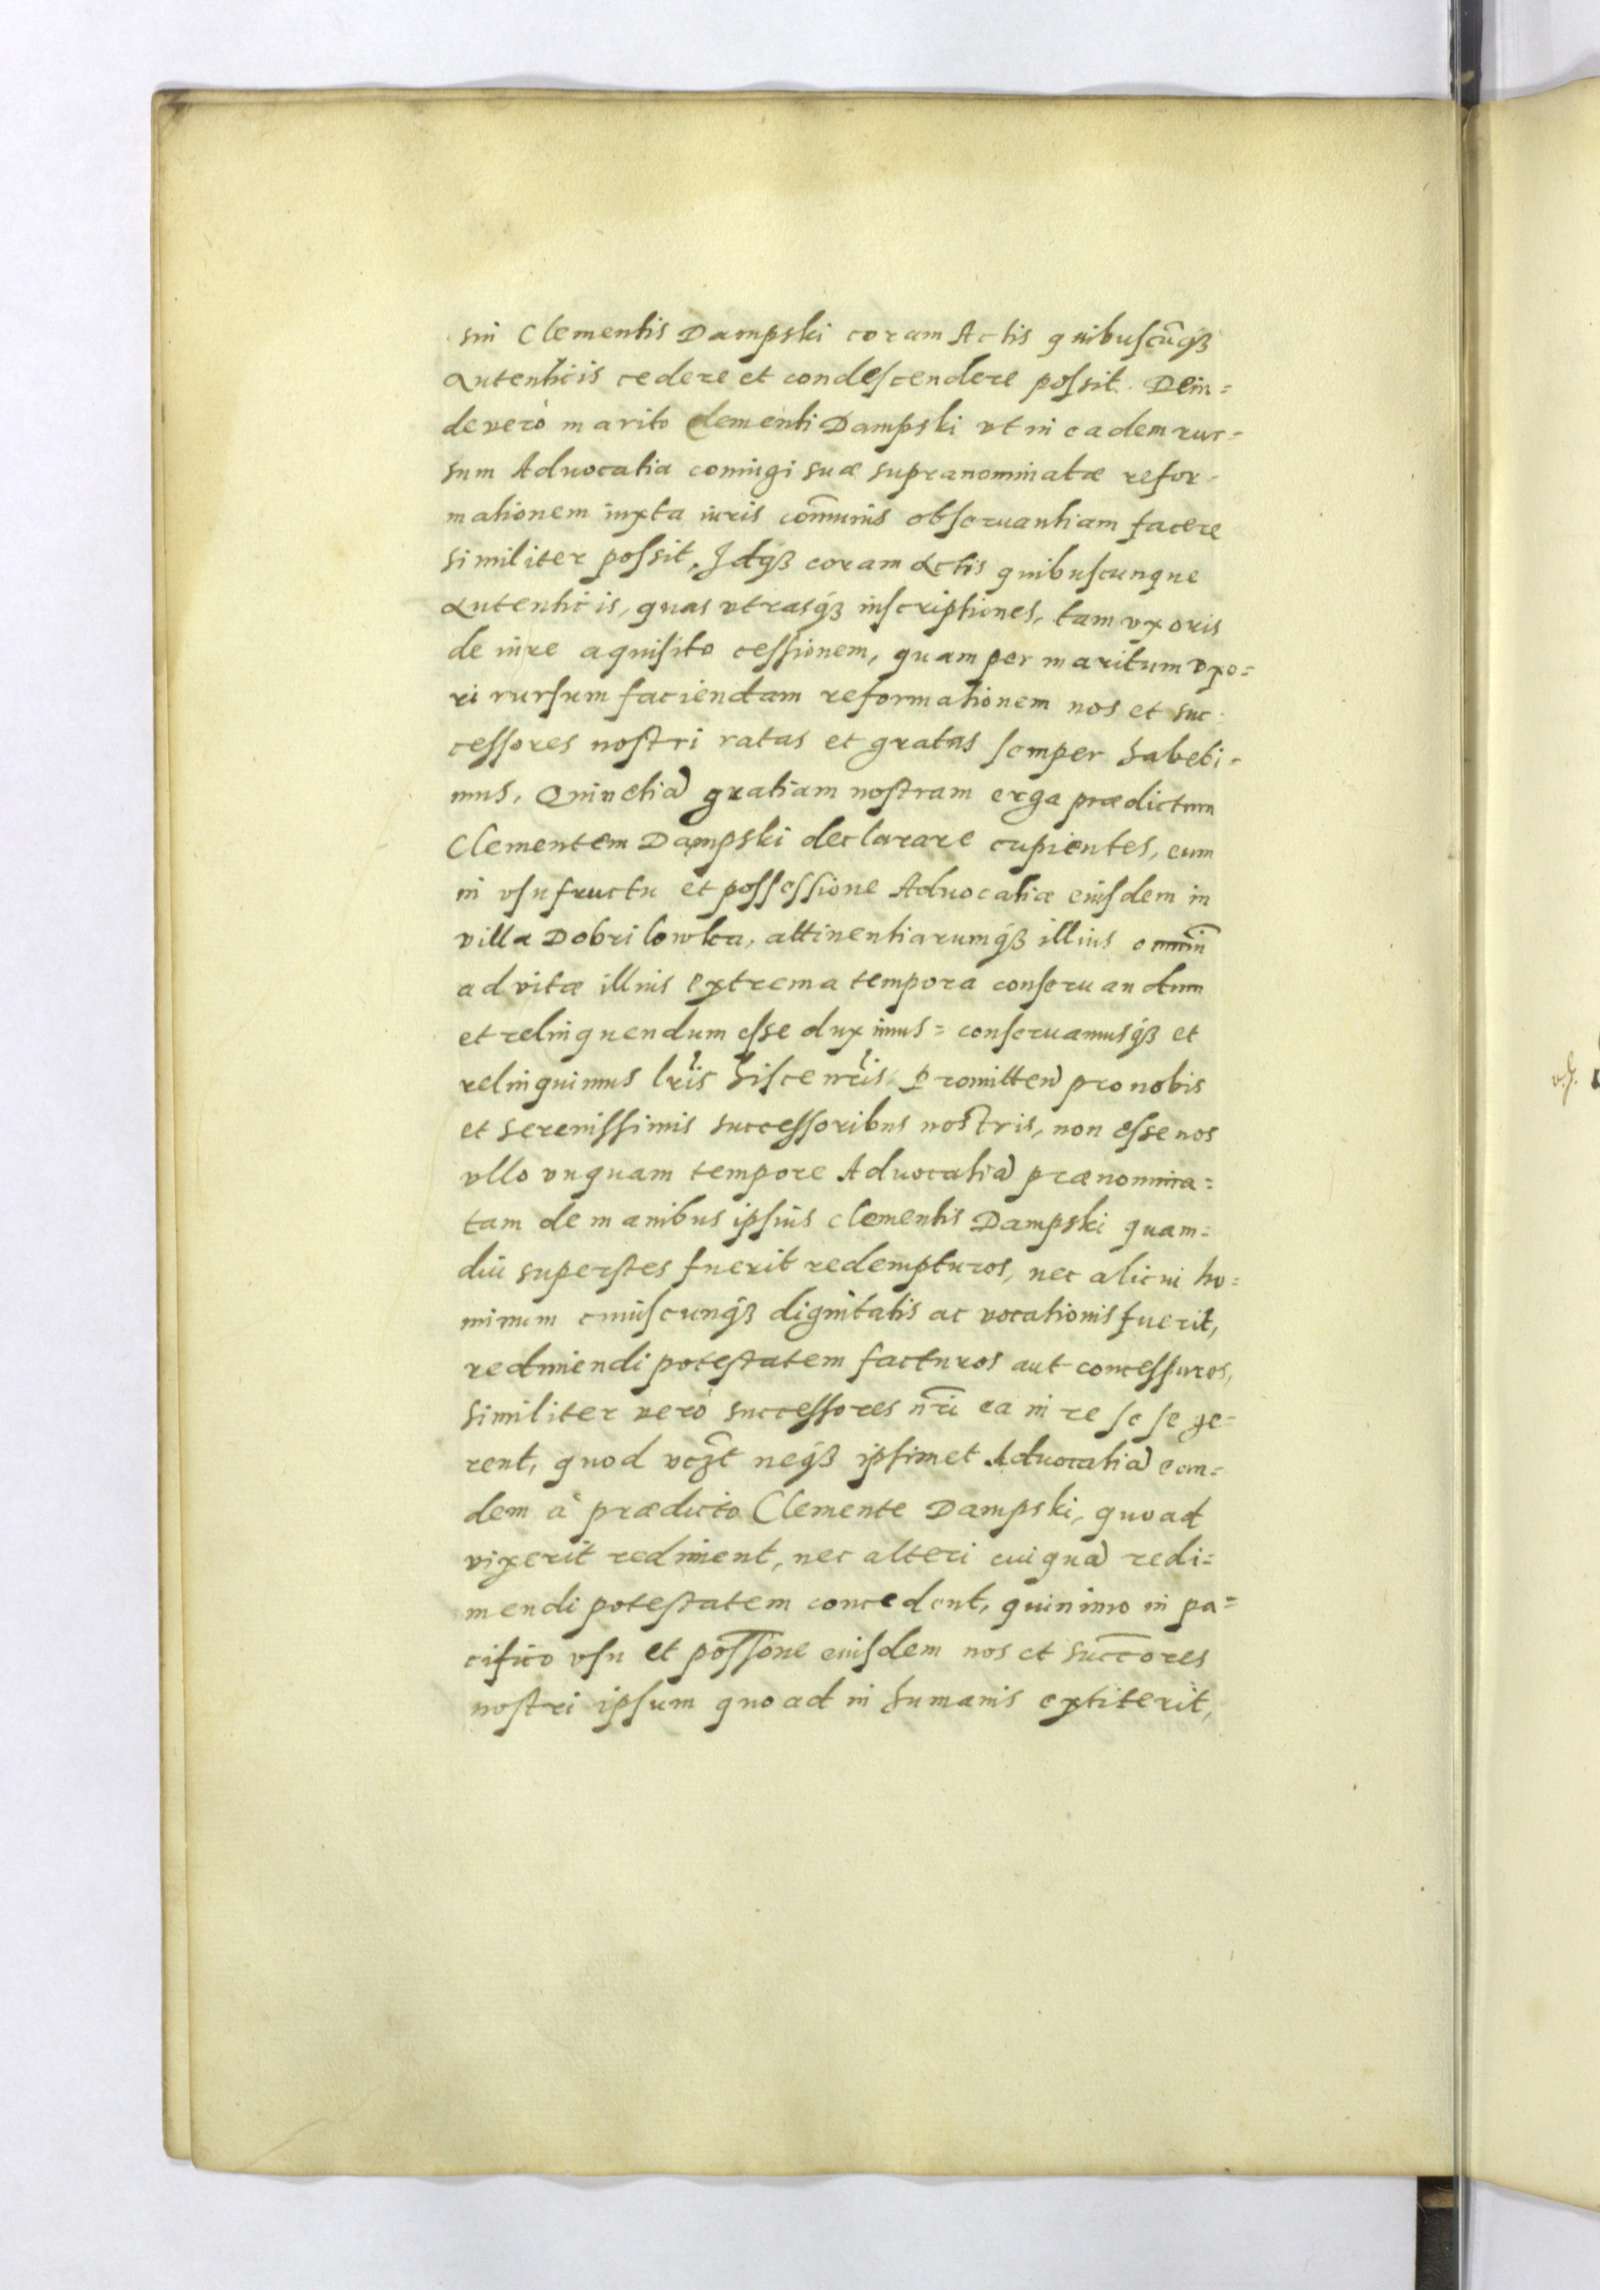 sui Clementis Dampski coram Actis quibuscũqȝ
autenticis cedere et condescendere possit. Dein=
de verò marito Clementi Dampski vt in eadem rur=
sum Aduocatia coniugi suæ supranominatæ refor=
mationem iuxta iuris com̃unis obseruantiam facere
similiter possit, Idqȝ coram actis quibuscunque
autenticis, quas vtrasqȝ inscriptiones, tam vxoris
de iure aquisito cessionem, quam per maritum vxo=
ri rursum faciendam reformationem nos et suc=
cessores nostri ratas et gratas semper habebi=
mus, Quinetiã gratiam nostram erga prædictum
Clementem Dampski declarare cupientes, eum
in vsufructu et possessione Aduocatiæ eiusdem in
villa Dobrilowka, attinentiarumqȝ illius omniũ
ad vitæ illius extrema tempora conseruandum
et relinquendum esse duximus= conseruamusqȝ et
relinquimus lr̃is hisce nr̃is, Promitteñ pro nobis
et serenissimis successoribus nostris, non esse nos
vllo vnquam tempore Aduocatiã prænomina=
tam de manibus ipsius Clementis Dampski quam=
diu superstes fuerit redempturos, nec alicui ho=
minum cuiuscunqȝ dignitatis ac vocationis fuerit,
redimendi potestatem facturos aut concessuros,
Similiter verò successores nr̃i ea in re sese ge=
rent, quod vcȝt neqȝ ipsimet Aduocatiã ean=
dem à prædicto Clemente Dampski, quoad
vixerit rediment, nec alteri cuiquã redi=
mendi potestatem concedent, quinimo in pa=
cifico vsu et poss̃one eiusdem nos et succ̃ores
nostri ipsum quoad in humanis extiterit,